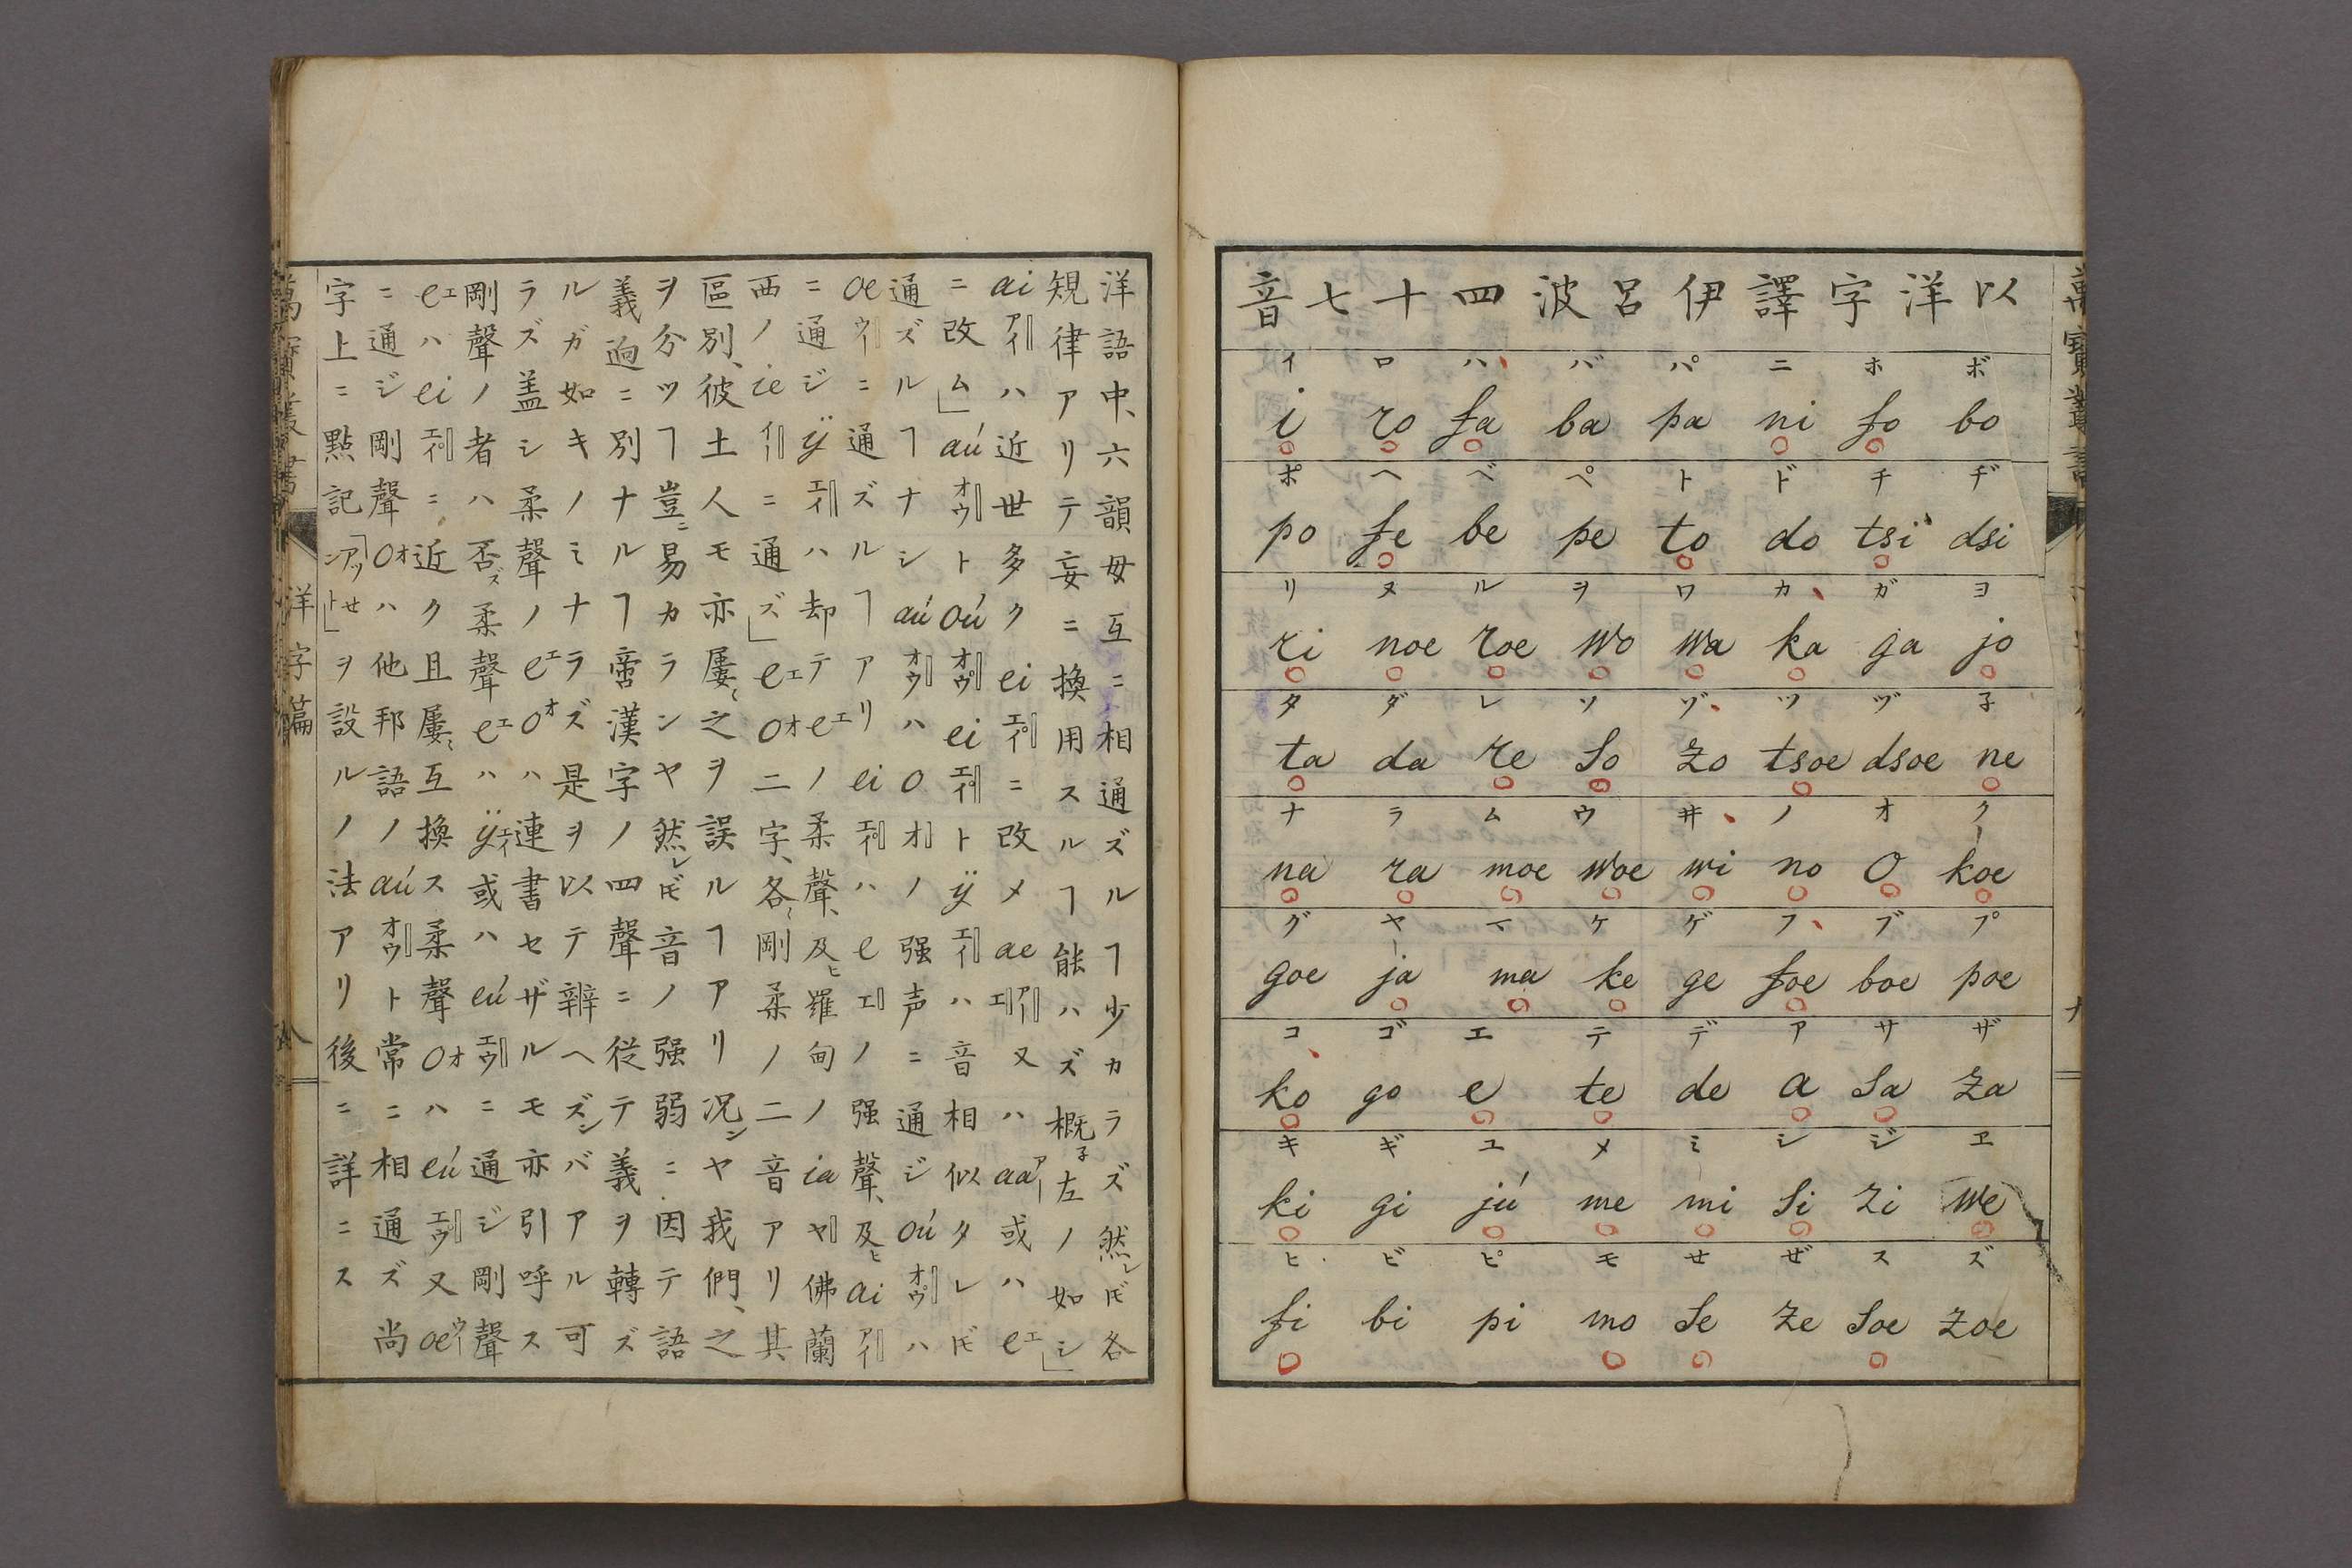 以洋字譯伊呂波四十七音
イ ロ ハ バ パ ニ ホ ボ
i ro fa ba pa ni fo bo
ポ ヘ ベ ペ ト ド チ ヂ
po fe be pe to do tsi dsi
リ ヌ ル ヲ ワ カ ガ ヨ
ri noe roe wo wa ka ga jo
タ ダ レ ソ ゾ ツ ヅ 子
ta da re so zo tsoe dsoe ne
ナ ラ ム ウ ヰ ノ オ ク
na ra moe woe wi no o koe
グ ヤ マ ケ ゲ フ ブ プ
goe ja ma ke ge foe boe poe
コ ゴ エ テ デ ア サ ザ
ko go e te de a sa za
キ ギ ユ メ ミ シ ジ ヱ
ki gi jú me mi si zi we
ヒ ビ ピ モ せ ぜ ス ズ
fi bi pi mo se ze soe zoe
洋語中、六韻母互ニ相通ズルヿ少カラズ然レ𪜈各
規律アリテ妄ニ換用スルヿ能ハズ概子左ノ如シ」
aiアイハ近世多クeiエイニ改メaeアーエ又ハaaアー或ハeエ
ニ改ム」aúオウトoúオウeiエイトÿエイハ音相似タレ𪜈
通ズルヿナシaúオウハoオノ强声ニ通ジoúオウハ
oeウーニ通ズルヿアリeiエイハeエノ强聲、及ヒaiアイ
ニ通ジÿエイハ却テeエノ柔聲、及ヒ羅甸ノiaヤ佛蘭
西ノieイーニ通ズ」eエoオ二字、各〻剛柔ノ二音アリ其
區別、彼土人モ亦屢〻之ヲ誤ルヿアリ况ンヤ我們、之
ヲ分ツヿ豈ニ易カランヤ然レ𪜈音ノ强弱ニ因テ語
義逈ニ別ナルヿ啻漢字ノ四聲ニ從テ義ヲ轉ズ
ルガ如キノミナラズ是ヲ以テ辨ヘズンバアル可
ラズ盖シ柔聲ノeエoオハ連書セザルモ亦引呼ス
剛聲ノ者ハ否ズ柔聲eエハÿエイ或ハeúエウニ通ジ剛聲
eエハeiエイニ近ク且屢〻互換ス柔聲oオハeúエウ又oeウー
ニ通ジ剛聲oオハ他邦語ノaúオウト常ニ相通ズ尚
字上ニ點記「アクセント」ヲ設ルノ法アリ後ニ詳ニス
洋字篇